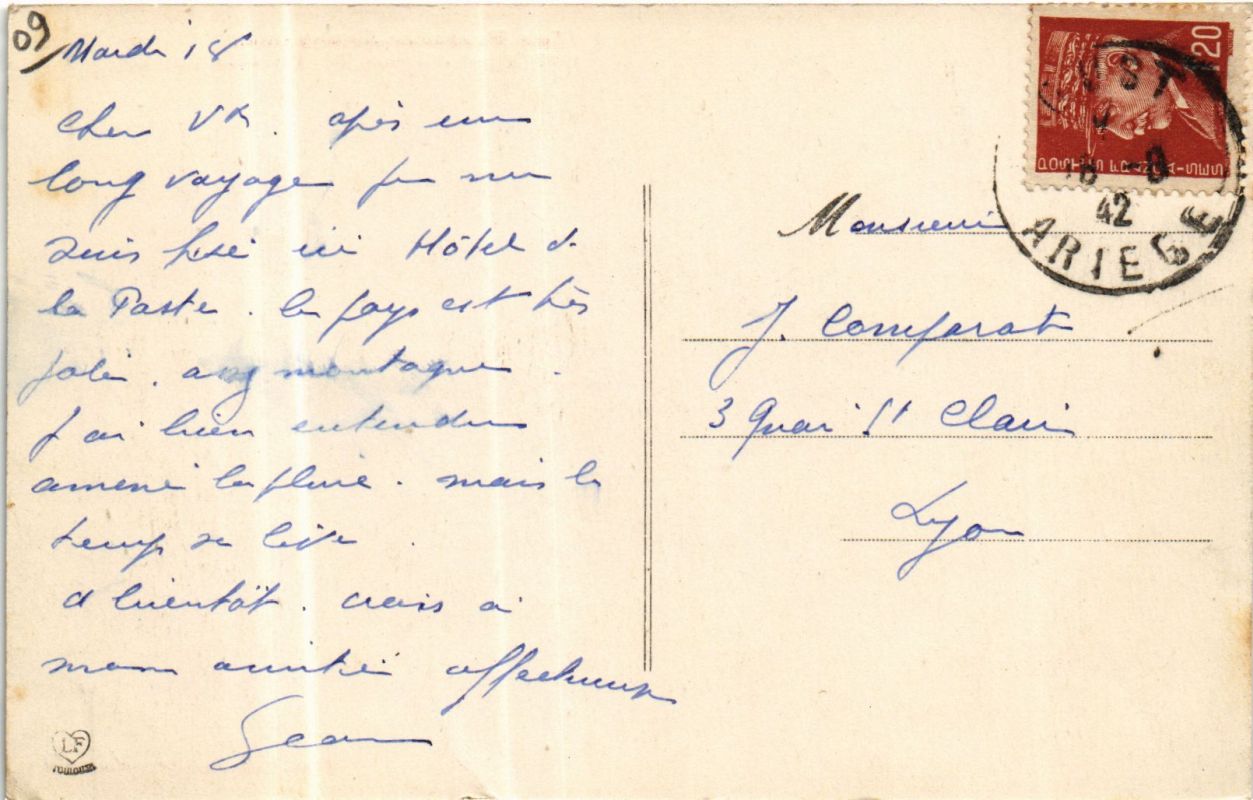 09
Mardi 18
Cher Vx. après un
long voyage je me
suis fixé ici Hôtel de
la Poste. le pays est très
joli. avec montagne.
J'ai bien entendu
amené la pluie. mais le
temps se lève.
A bientôt. crois à
mon amitié affectueuse
Jean
LF
TOULOUSE
20
POSTES FRANÇAISES
UST
18 -8
42
ARIEGE
Monsieur
J. Comparat
3 Quai St Clair
Lyon